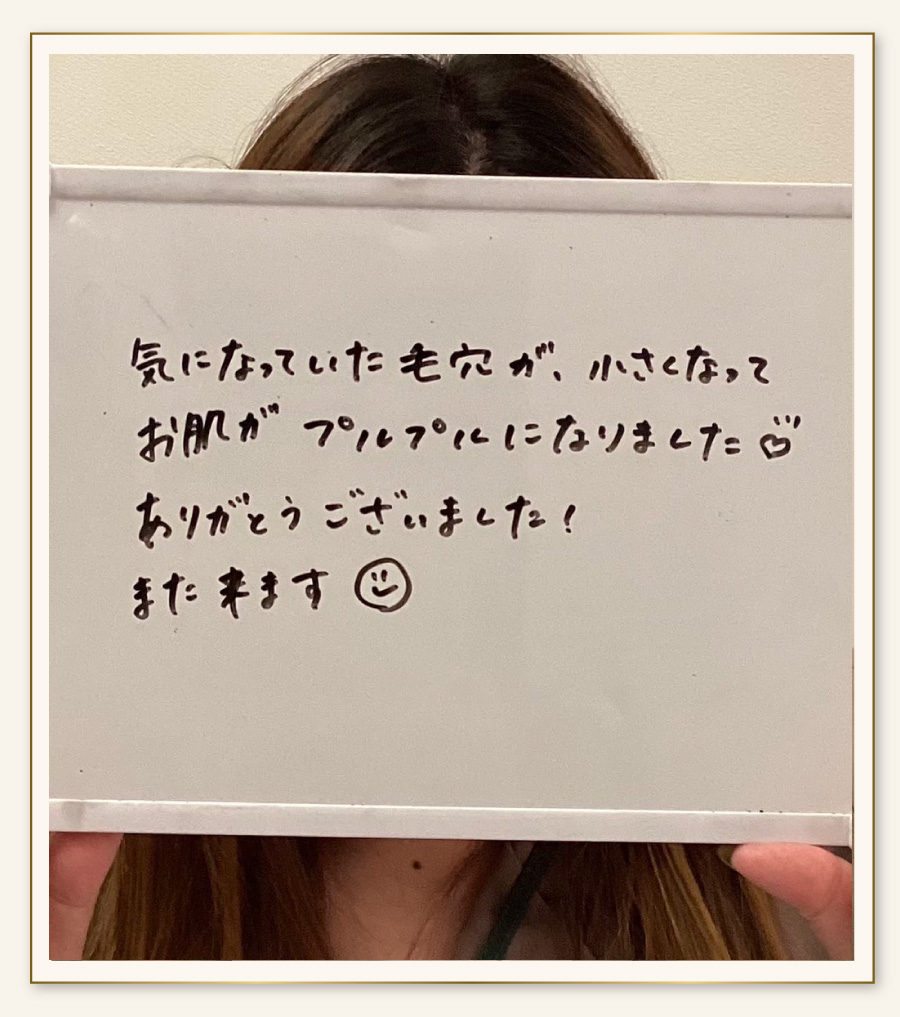 気になっていた毛穴が、小さくなって
お肌がプルプルになりました♡
ありがとうございました!
また来ます☺